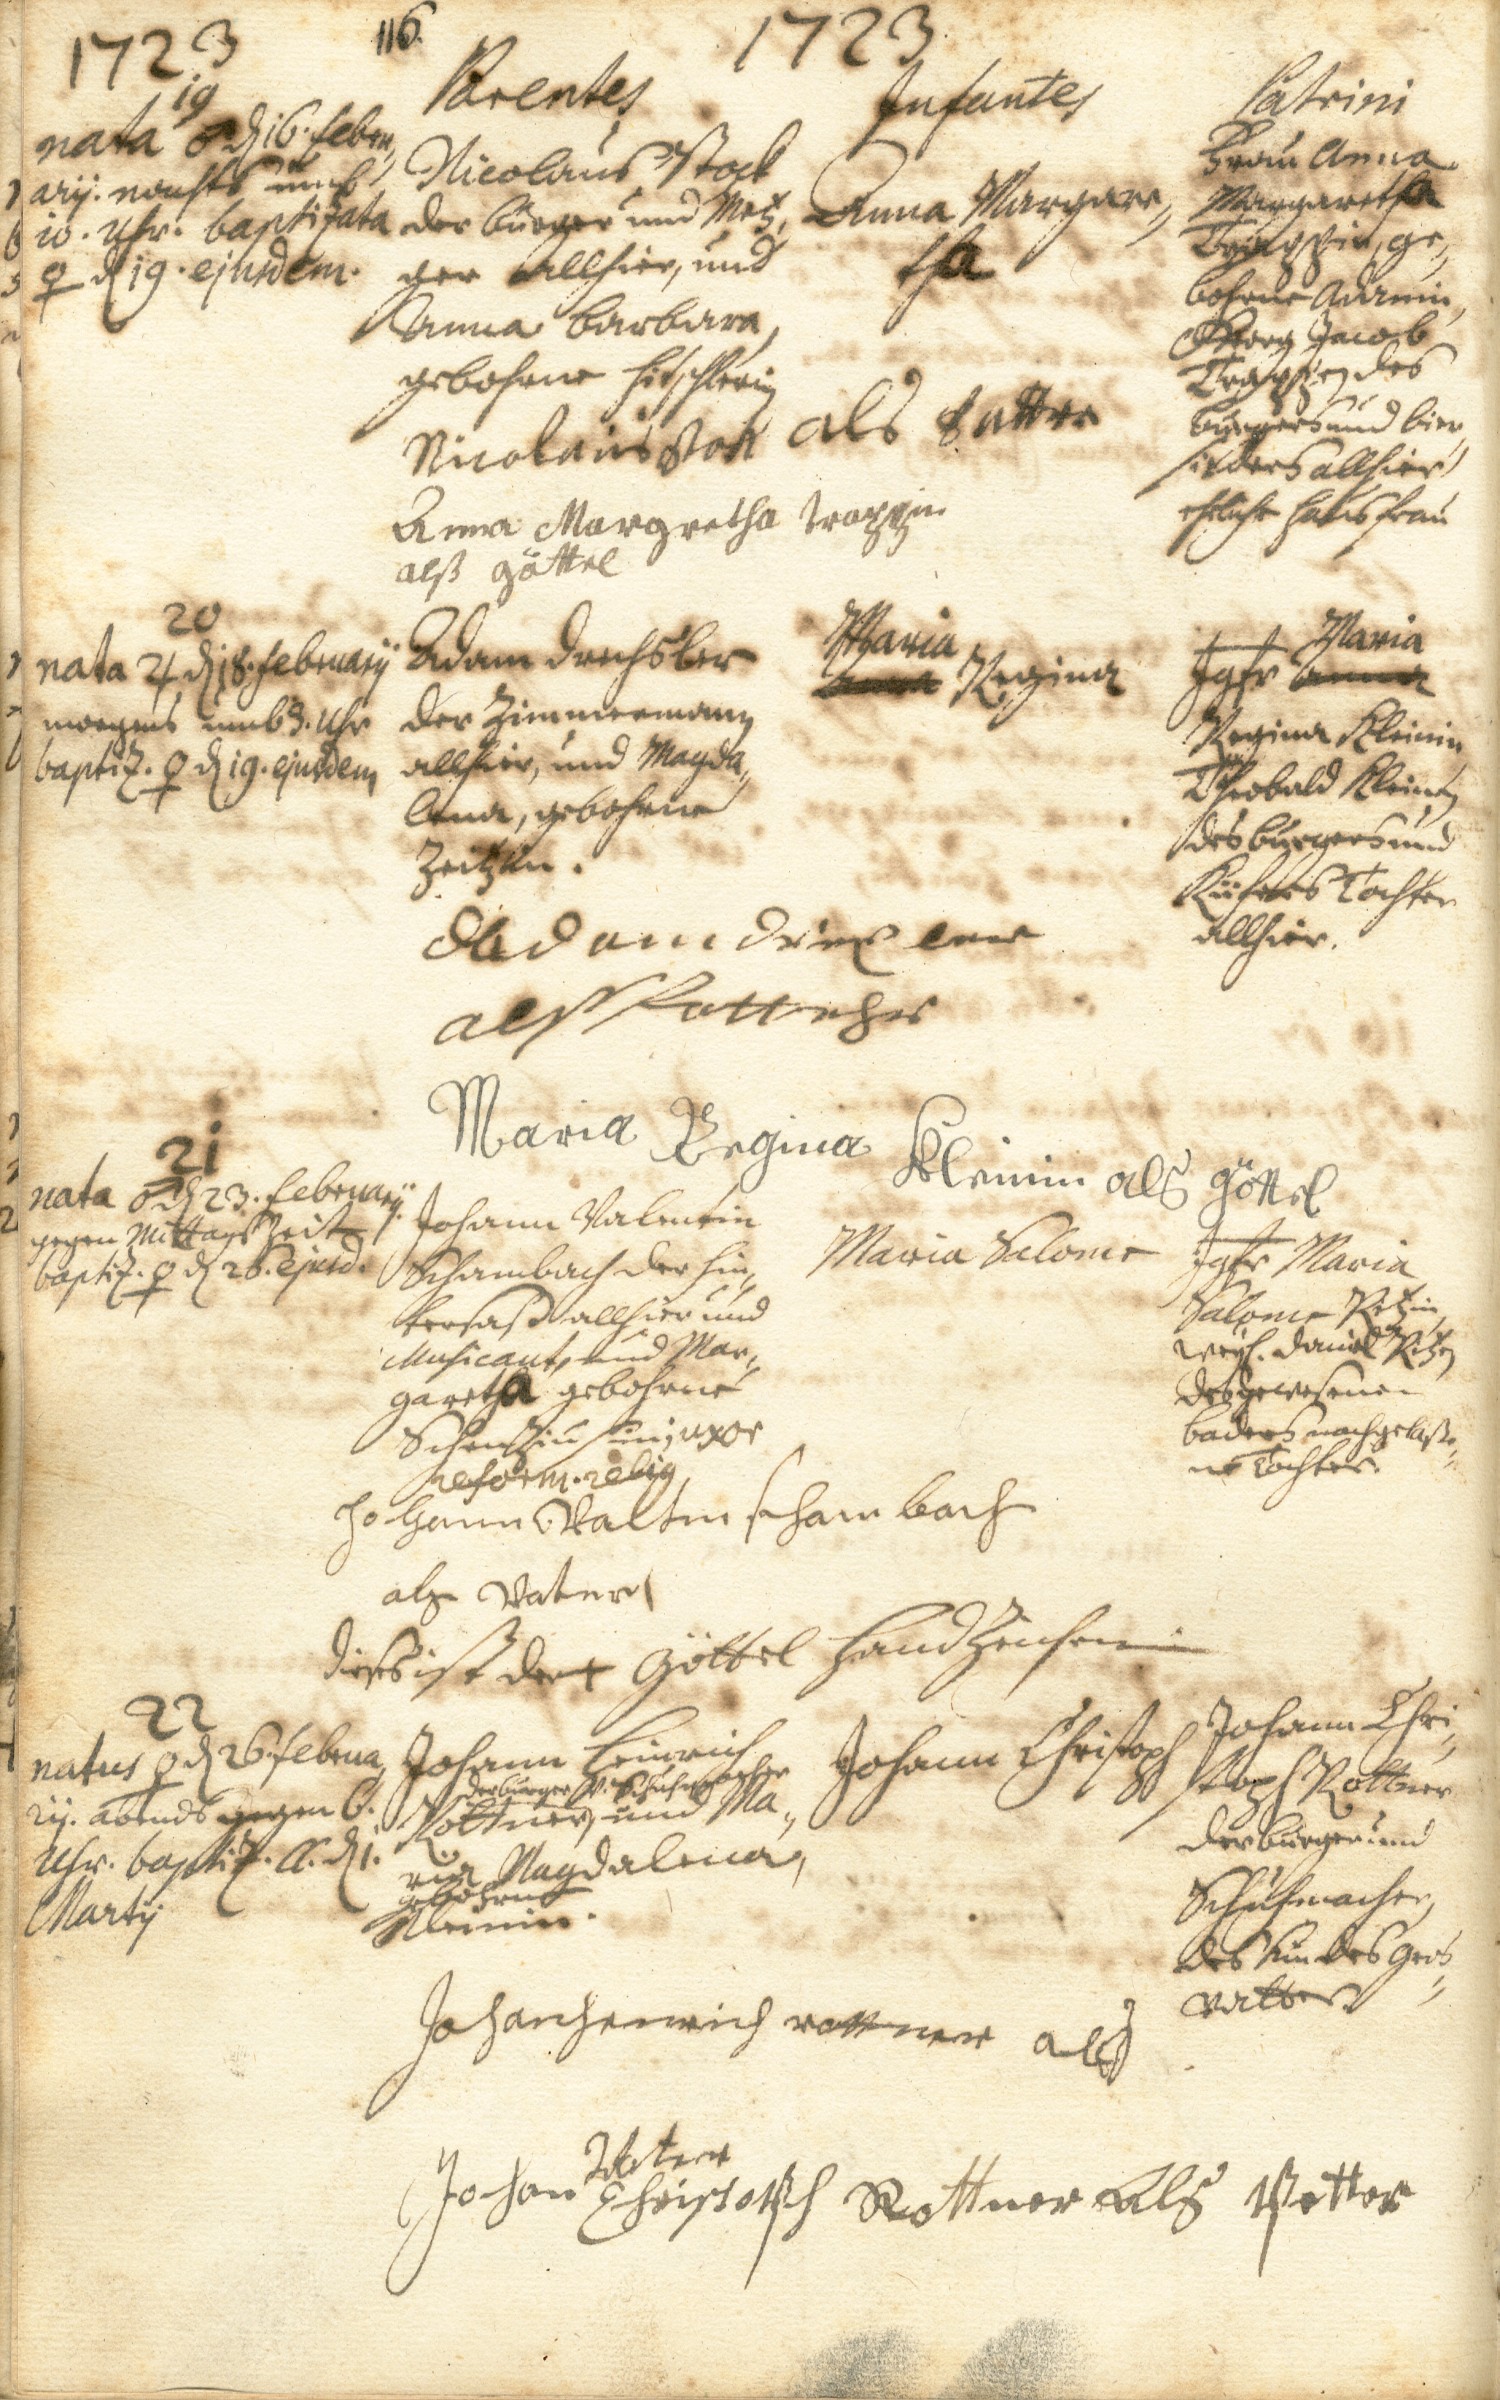 1723
116.
1723
Parentes
Infantes
Patrini
19
nata ♂ d 16. Febru,
arij. nachts umb
10. Uhr. baptizata
♀ d 19. ejusdem.
Nicolaus Stock
der burger und Metz,
ger allhier, und
Anna Barbara,
gebohrne
Anna Margare,,
tha
Frau Anna
Margaretha
ge,,
bohrne Adamin,
Georg Jacob
des
burgers und bier,
sieders allhier
eheliche Hausfrau
Nicolaus Stock als Vatter
Anna Margretha trappin
alß göttel
20
nata ♃ d 18. Februarij
morgens umb 3. Uhr
baptiz. ♀ d 19. ejusdem
Adam Drechsler
der Zimmermann
allhier, und Magda,,
lena, gebohrne
Zeitzin.
Maria
Anna Regina
Maria
Jgfr Anna
Regina Kleinin
Theobald Kleinen
des burgers und
Küfers Tochter
allhier.
Adam
als
Maria Regina Kleinin als göttel
21
nata ♂ d 23. Februarij.
gegen Mittags Zeit
baptiz. ♀ d 26. ejusd.
Johann Valentin
Schambach der Hin,,
tersaß allhier und
Musicant, und Mar,,
garetha gebohrne
uxor
reform. relig.
Maria Salome
Jgfr Maria
Salome Ritzin,
weyl. Daniel Ritzen
des gewesenen
baders nachgelaße,,
ne Tochter.
Johann Valtin schambach
als Vater
dieses ist der göttel handzeichen
22
natus ♀ d 26. Februa,
rij. abends gegen 6.
Uhr. baptiz. ☾. d 1.
Martij
Johann Heinrich
der burger u. Schuhmacher
Rottner, und Ma,,
ria Magdalena,
gebohrne
Kleinin.
Johann Christoph
Johann Chri,,
stoph Rottner
der burger und
Schuhmacher,
des Kindes Gros,,
vatter
Johanhenrich rottner als
Vater
Johan Christoph Rottner Als Petter